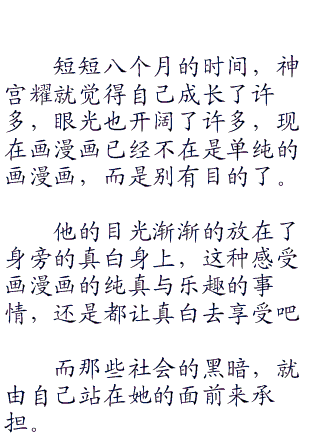 短短八个月的时间，神
宫耀就觉得自己成长了许
多，眼光也开阔了许多，现
在画漫画已经不在是单纯的
画漫画，而是别有目的了。
他的目光渐渐的放在了
身旁的真白身上，这种感受
画漫画的纯真与乐趣的事
情，还是都让真白去享受吧
而那些社会的黑暗，就
由自己站在她的面前来承
担。